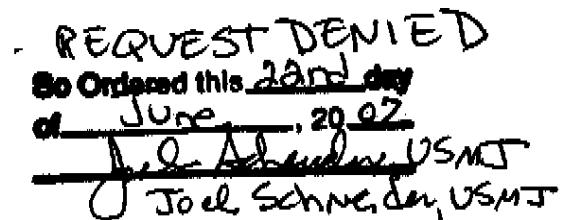 REQUEST DENIED
So Ordered this 22nd day
of June, 2007
Joel Schneider USMJ
Joel Schneider, USMJ